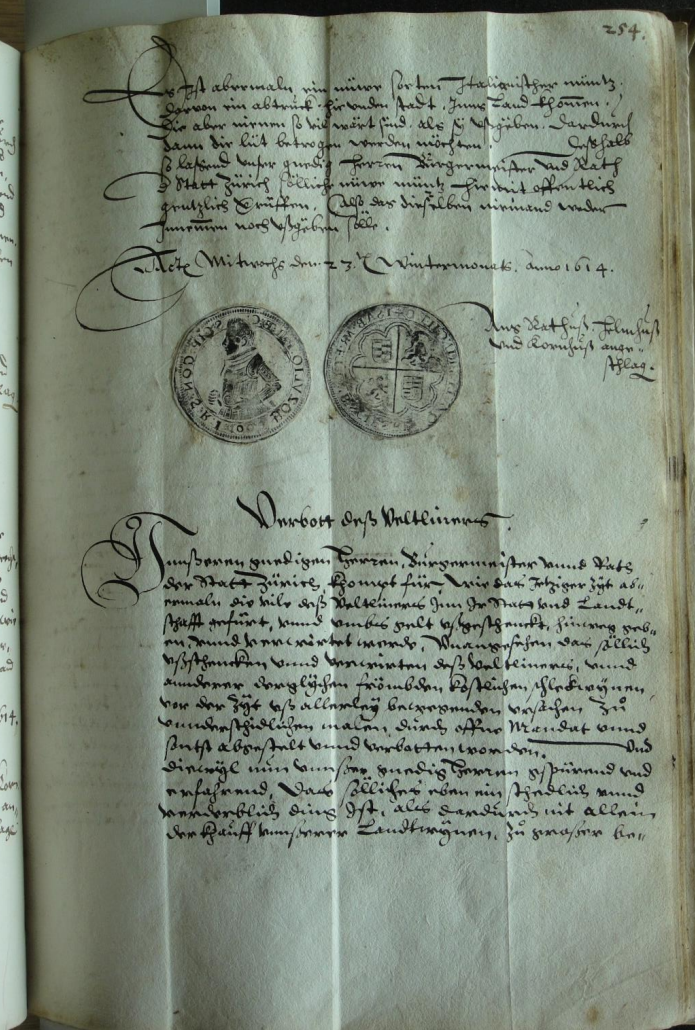 254.
Es ist abermaln ein nüwe sorten Italienischer müntz,
darvon ein abtruck hie unden stadt, Inns Land khommen,
die aber nienen so vil wärt sind, als sy ußgeben, dardurch
dann die lüt betrogen werden möchten. Deßhalb
so lassend unser gnedig Herren Bürgermeister und Rath
d Statt Zürich sölliche nüwe müntz hiemit offentlich
gentzlich verüffen. Also das dieselben niemand weder
Innemmen noch ußgeben sölle.
Actum Mitwochs den 23. Wintermonats, Anno 1614.
Ans Rathuß, Helmhuß
und Kornhuß ange-
schlag.
Verbott deß Veltliners.
Unnßeren gnedigen Herren, Bürgermeister unnd Rath
der Statt Zürich, khompt für, wie das Jetziger Zyt ab-
ermaln die vile deß Veltliners Inn Ir Statt und Landt-
schafft gefürt, unnd umbs gelt ußgeschenckt, hinweg geb-
en, unnd verwirtet werde, Unangesehen das söllich
ußschencken unnd verwirten deß Veltliners, unnd
annderer derglychen frömbden köstlichen schleckwynen,
vor der Zyt uß allerley bewegenden ursachen zu
unnderschidlichen malen, durch offne Mandat unnd
sontst abgestelt unnd verbotten worden. Und
diewyl nun unnßer gnedig Herren gspürend und
erfahrend, das sölliches eben ein schedlich unnd
verderblich ding Ist, als dardurch nit allein
der khauff unnßerer Landtwynen, zu großer be-